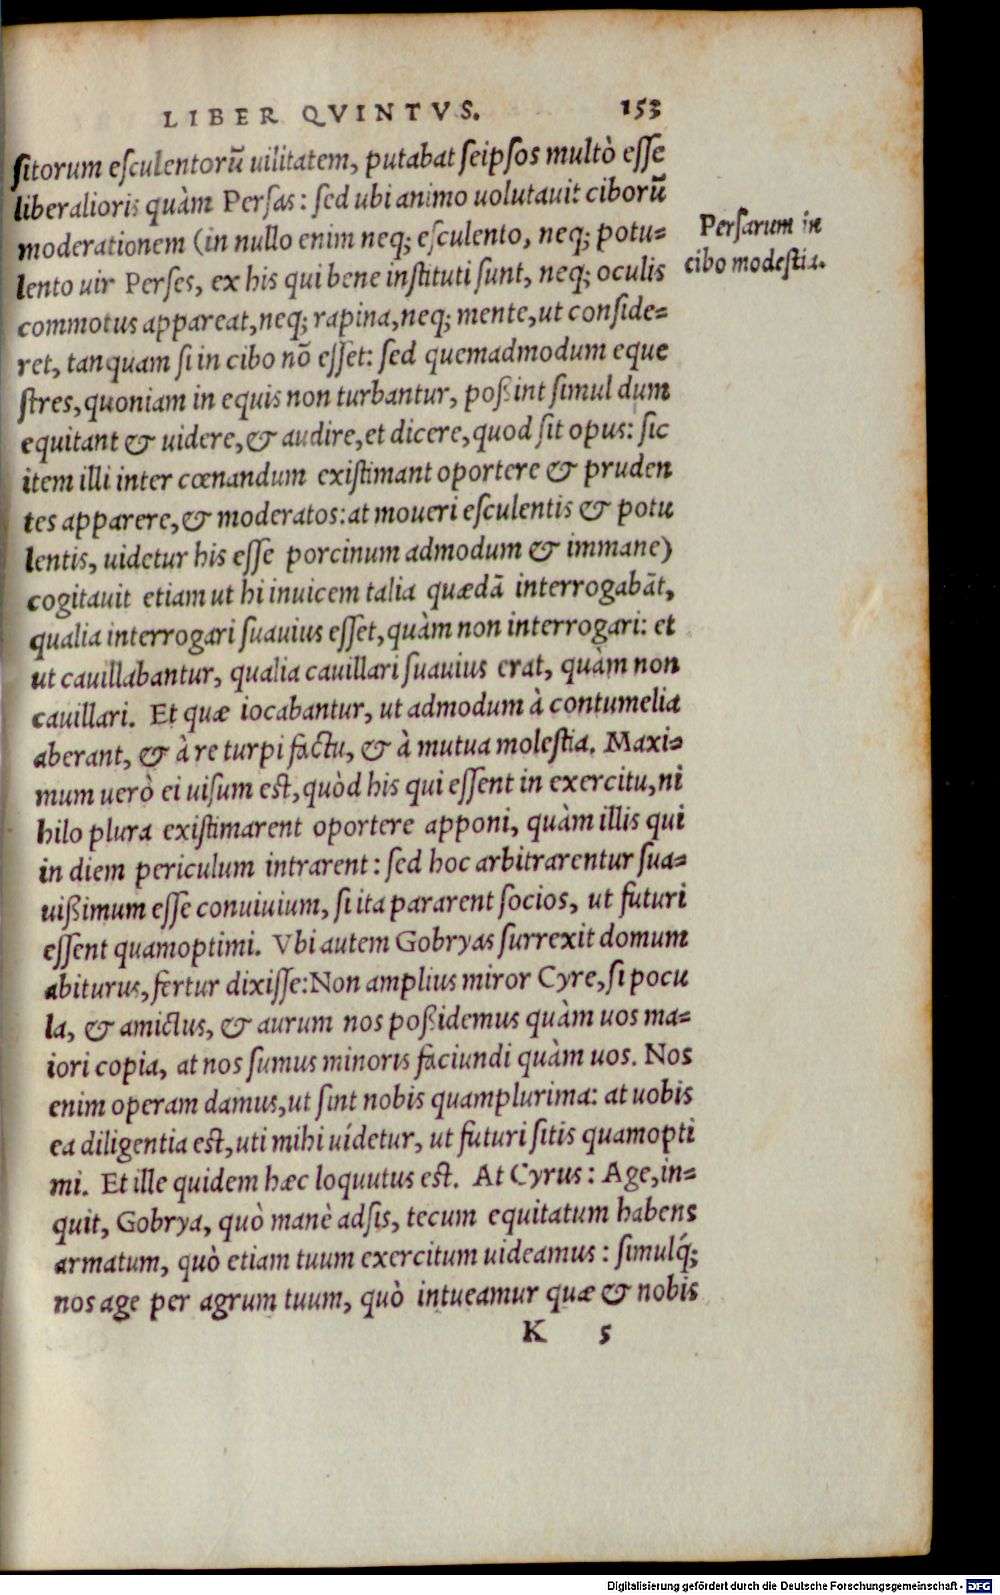 LIBER QVINTVS. 153
sitorum esculentorũ uilitatem, putabat seipsos multò esse
liberalioris quàm Persas: sed ubi animo uolutauit ciborũ
moderationem (in nullo enim neq; esculento, neq; potu-
lento uir Perses, ex his qui bene instituti sunt, neq; oculis
commotus appareat, neq; rapina, neq; mente, ut conside-
ret, tanquam si in cibo nõ esset: sed quemadmodum eque
stres, quoniam in equis non turbantur, poßint simul dum
equitant & uidere, & audire, et dicere, quod sit opus: sic
item illi inter cœnandum existimant oportere & pruden
tes apparere, & moderatos: at moueri esculentis & potu
lentis, uidetur his esse porcinum admodum & immane)
cogitauit etiam ut hi inuicem talia quædã interrogabãt,
qualia interrogari suauius esset, quàm non interrogari: et
ut cauillabantur, qualia cauillari suauius erat, quàm non
cauillari. Et quæ iocabantur, ut admodum à contumelia
aberant, & à re turpi factu, & à mutua molestia. Maxi-
mum uerò ei uisum est, quòd his qui essent in exercitu, ni
hilo plura existimarent oportere apponi, quàm illis qui
in diem periculum intrarent: sed hoc arbitrarentur sua-
uißimum esse conuiuium, si ita pararent socios, ut futuri
essent quamoptimi. Vbi autem Gobryas surrexit domum
abiturus, fertur dixisse: Non amplius miror Cyre, si pocu
la, & amictus, & aurum nos poßidemus quàm uos ma-
iori copia, at nos sumus minoris faciundi quàm uos. Nos
enim operam damus, ut sint nobis quamplurima: at uobis
ea diligentia est, uti mihi uídetur, ut futuri sitis quamopti
mi. Et ille quidem hæc loquutus est. At Cyrus: Age, in-
quit, Gobrya, quò manè adsis, tecum equitatum habens
armatum, quò etiam tuum exercitum uideamus: simulq́;
nos age per agrum tuum, quò intueamur quæ & nobis
K 5
Persarum in
cibo modestia.
Digitalisierung gefördert durch die Deutsche Forschungsgemeinschaft - DFG